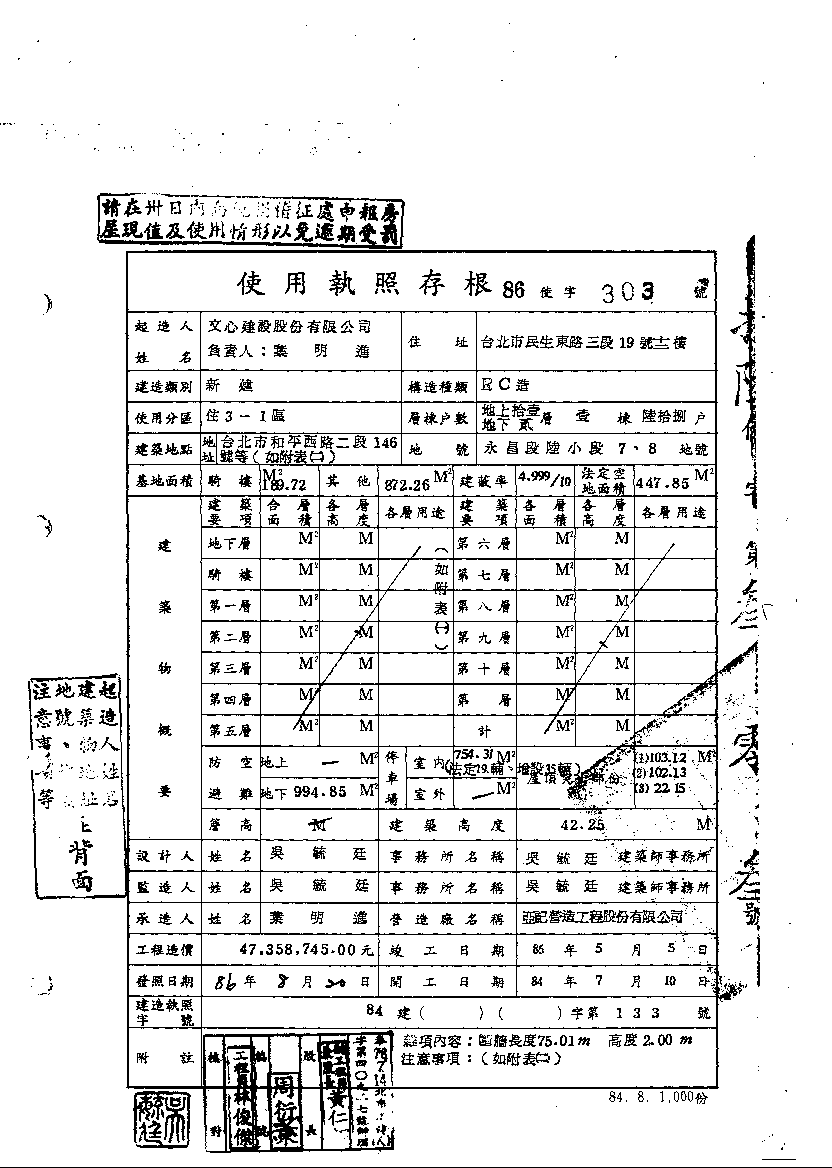 請在卅日內 處申報房
屋現值及使用情形以免逾期受罰
使用執照存根 86 使字 303 號
起造人姓名 文心建設股份有限公司 住址 台北市民生東路三段19號土樓
負責人：葉明進
建造類別 新建 構造種類 RC造
使用分區 住3－1區 層棟戶數 地上拾壹地下貳層 壹棟 陸拾捌戶
建築地點 地址 台北市和平西路二段146號等（如附表㈡） 地號 永昌段陸小段7、8 地號
基地面積 騎樓 189.72 M² 其他 872.26 M² 建蔽率 4.999/10 法定空地面積 447.85 M²
建築物概要 建築要項 合層面積 各層高度 各層用途 建築要項 各層面積 各層高度 各層用途
地下層 M² M 第六層 M² M
騎樓 M² M 第七層 M² M
第一層 M² M 第八層 M² M
第二層 M² M 第九層 M² M
第三層 M² M 第十層 M² M
第四層 M² M 第 層 M² M
第五層 M² M 計 M² M
（如附表㈠）
防空避難 地上 — M² 停車場 室內 754.31 M² (法定19輛、增設35輛) (1)103.12 M²
(2)102.13
(3) 22.15
地下 994.85 M² 室外 — M²
簷高 M 建築高度 42.25 M
設計人 姓名 吳毓廷 事務所名稱 吳毓廷 建築師事務所
監造人 姓名 吳毓廷 事務所名稱 吳毓廷 建築師事務所
承造人 姓名 葉明進 營造廠名稱 亞記營造工程股份有限公司
工程造價 47,358,745.00元 竣工日期 86年5月5日
發照日期 86年8月20日 開工日期 84年7月10日
建造執照字號 84建（ ）（ ）字第133號
附註 雜項內容：圍牆長度75.01m 高度2.00m
注意事項：（如附表㈡）
核對 工程員林俊傑 周衍 股長 黃仁
84. 8. 1,000份
起造人姓名
建築物地址
地號、
注意事 等
背面